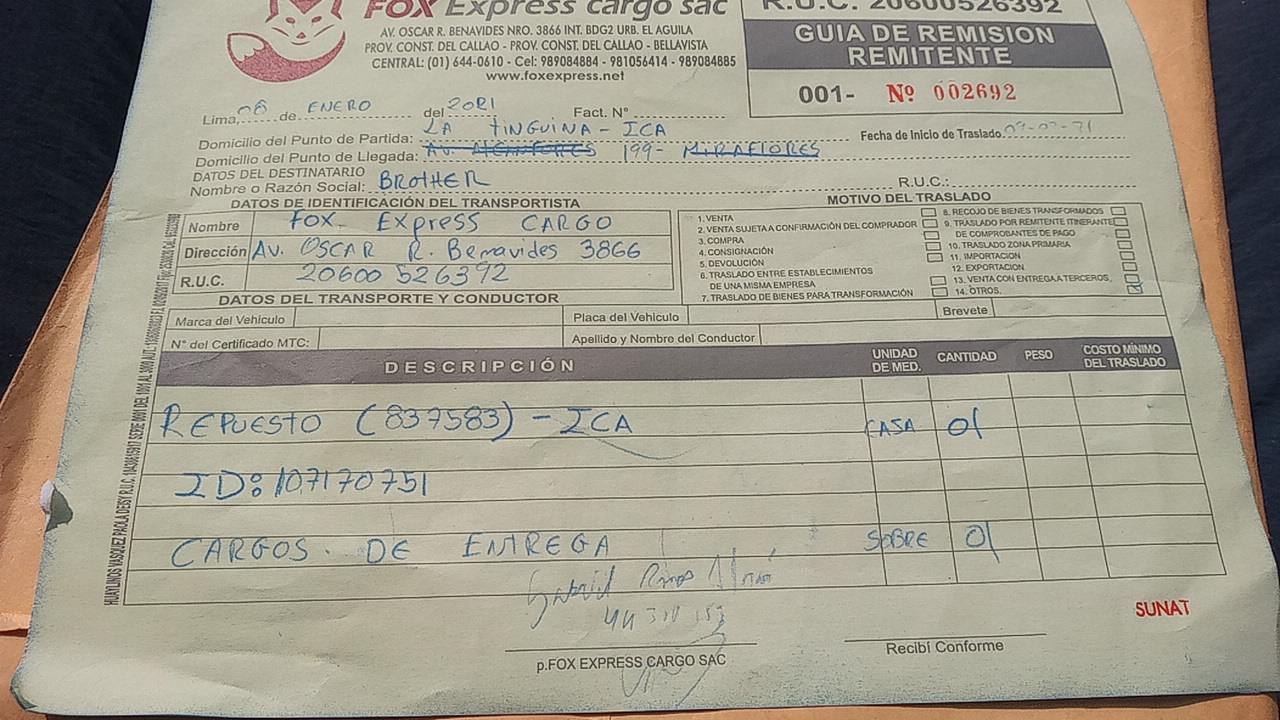 FOX Express cargo sac
AV. OSCAR R. BENAVIDES NRO. 3866 INT. BDG2 URB. EL AGUILA
PROV. CONST. DEL CALLAO - PROV. CONST. DEL CALLAO - BELLAVISTA
CENTRAL: (01) 644-0610 - Cel: 989084884 - 981056414 - 989084885
www.foxexpress.net
R.U.C. 20600526392
GUIA DE REMISION
REMITENTE
001- Nº 002692
Lima, 08 de ENERO del 2021 Fact. N°
Domicilio del Punto de Partida: LA TINGUINA - ICA Fecha de Inicio de Traslado
Domicilio del Punto de Llegada: AV. 199- MIRAFLORES
DATOS DEL DESTINATARIO
Nombre o Razón Social: BROTHER R.U.C.:
DATOS DE IDENTIFICACIÓN DEL TRANSPORTISTA
Nombre FOX Express CARGO
Dirección AV. OSCAR R. Benavides 3866
R.U.C. 20600 526392
MOTIVO DEL TRASLADO
1. VENTA
2. VENTA SUJETA A CONFIRMACIÓN DEL COMPRADOR
3. COMPRA
4. CONSIGNACIÓN
5. DEVOLUCIÓN
6. TRASLADO ENTRE ESTABLECIMIENTOS
DE UNA MISMA EMPRESA
7. TRASLADO DE BIENES PARA TRANSFORMACIÓN
8. RECOJO DE BIENES TRANSFORMADOS
9. TRASLADO POR REMITENTE ITINERANTE
DE COMPROBANTES DE PAGO
10. TRASLADO ZONA PRIMARIA
11. IMPORTACION
12. EXPORTACION
13. VENTA CON ENTREGA A TERCEROS
14. OTROS
DATOS DEL TRANSPORTE Y CONDUCTOR
Marca del Vehículo Placa del Vehículo Brevete
N° del Certificado MTC: Apellido y Nombre del Conductor
DESCRIPCIÓN UNIDAD DE MED. CANTIDAD PESO COSTO MÍNIMO DEL TRASLADO
REPUESTO (837583) - ICA CASA 01
ID: 107170751
CARGOS DE ENTREGA SOBRE 01
Gabriel
p.FOX EXPRESS CARGO SAC
Recibí Conforme
SUNAT